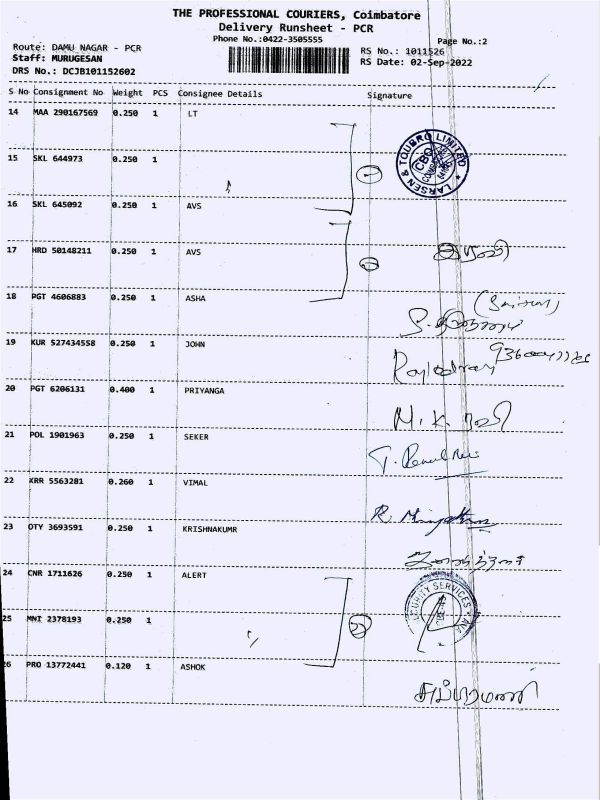 THE PROFESSIONAL COURIERS, Coimbatore
Delivery Runsheet - PCR
Phone No.:0422-3505555
Page No.:2
Route: DAMU NAGAR - PCR
Staff: MURUGESAN
DRS No.: DCJB101152602
RS No.: 1011526
RS Date: 02-Sep-2022
S No Consignment No Weight PCS Consignee Details Signature
14 MAA 290167569 0.250 1 LT
LARSEN & TOUBRO LIMITED
CBO
15 SKL 644973 0.250 1
16 SKL 645092 0.250 1 AVS
17 HRD 50148211 0.250 1 AVS
18 PGT 4606883 0.250 1 ASHA
19 KUR 527434558 0.250 1 JOHN
20 PGT 6206131 0.400 1 PRIYANGA
M. K.
21 POL 1901963 0.250 1 SEKER
22 KRR 5563281 0.260 1 VIMAL
23 OTY 3693591 0.250 1 KRISHNAKUMR
24 CNR 1711626 0.250 1 ALERT
SECURITY SERVICES
25 MNI 2378193 0.250 1
26 PRO 13772441 0.120 1 ASHOK